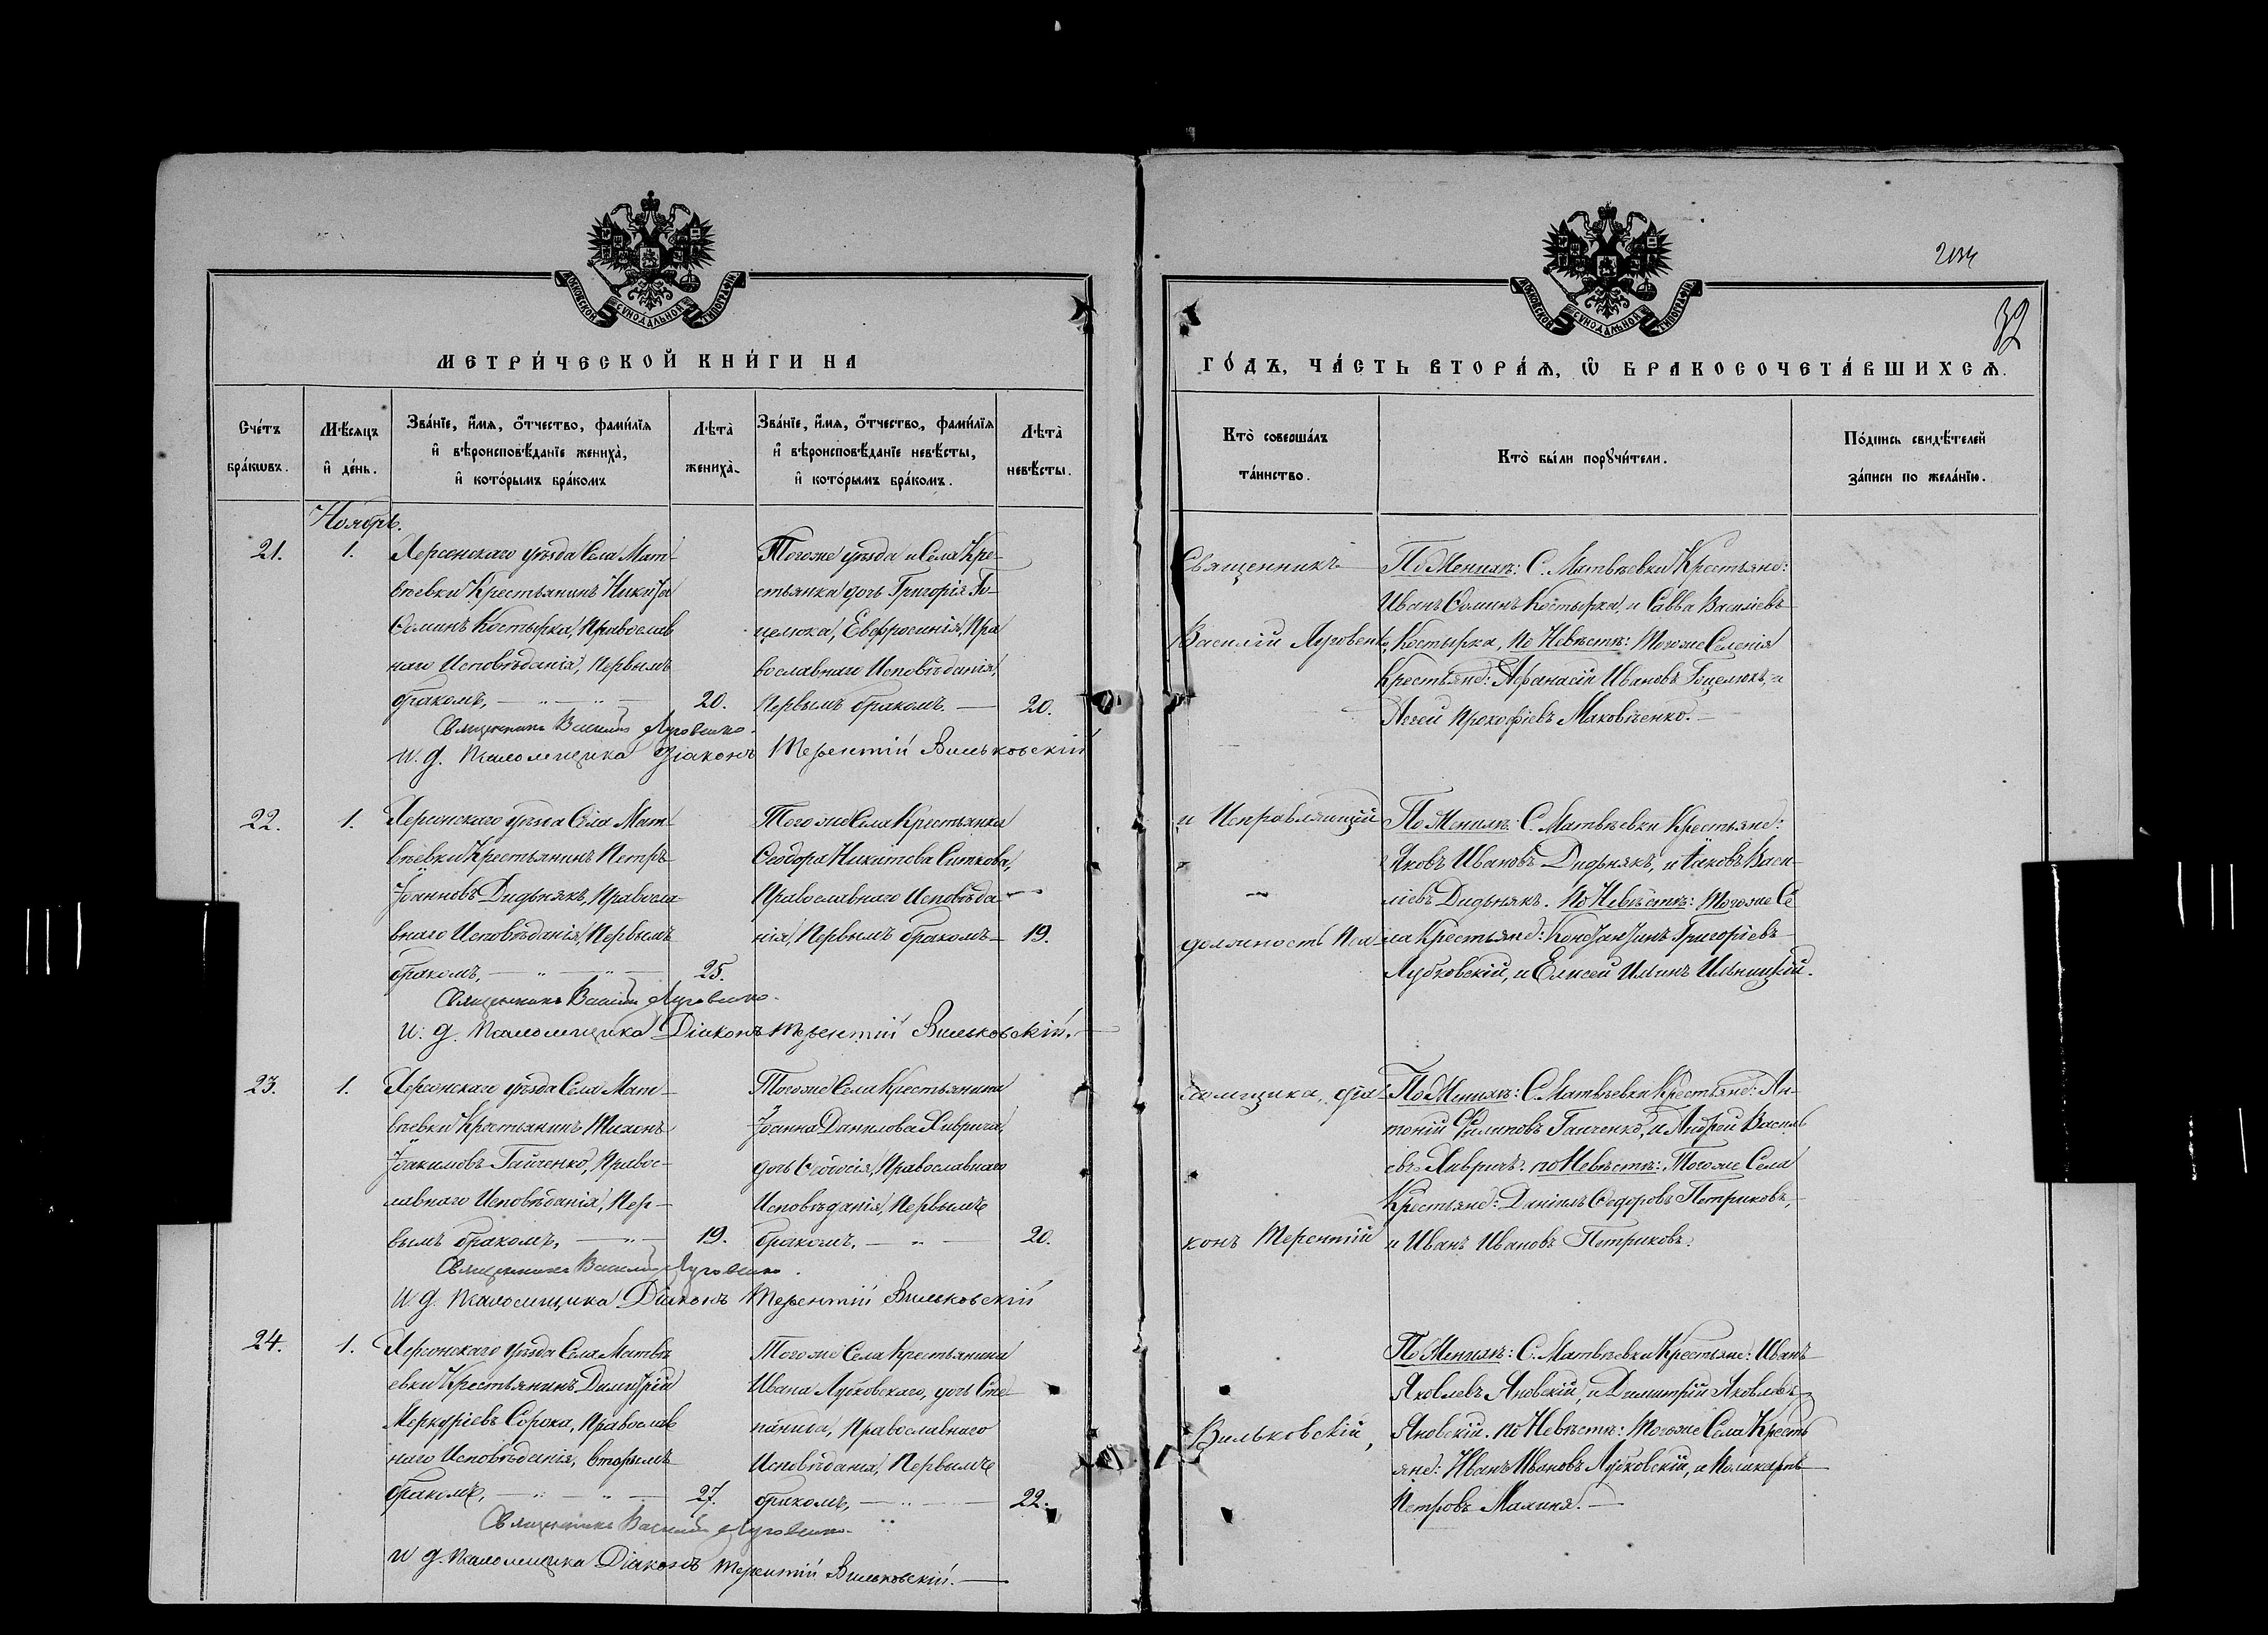 МОСКОВСКОЙ СѴНОДАЛЬНОЙ ТИПОГРАФІИ
МЕТРИ́ЧЕСКОЙ КНИ́ГИ НА
Сче́тъ бра́кѡвъ.
Мѣ́сяцъ и҆ де́нь.
Зва́нїе, и҆́мѧ, ѻ҆́тчество, фами́лїѧ
и҆ вѣроисповѣ́данїе женихà,
и҆ кото́рымъ бра́комъ
Лѣтà женихà.
Зва́нїе, и҆́мѧ, ѻ҆́тчество, фами́лїѧ
и҆ вѣроисповѣ́данїе невѣ́сты,
и҆ кото́рымъ бра́комъ.
Лѣтà невѣ́сты.
Ноябрь.
21.
1.
Херсонскаго уѣзда Села Мат-
вѣевки Крестьянинъ Никита
Ѳоминъ Костырка, Православ
наго Исповѣданія, первымъ
бракомъ,
20.
Того же уѣзда и Села Кре-
стьянка дочь Григорія Го-
целюка, Евфросинія, Пра
вославнаго Исповѣданія,
Первымъ бракомъ.
20.
Священникъ Василій Луговенко.
И. д. Псаломщика Діаконъ Терентій Вильковскій
22.
1.
Херсонскаго уѣзда Села Мат-
вѣевки Крестьянинъ Петръ
Іоанновъ Дидынякъ, Правосла-
внаго Исповѣданія, Первымъ
бракомъ,
25.
Того же Села Крестьянка
Ѳеодора Никитова Ситкова,
Православнаго Исповѣда-
нія, Первымъ бракомъ
19.
Священникъ Василій Луговенко.
И. д. Псаломщика Діаконъ Терентій Вильковскій.
23.
1.
Херсонскаго уѣзда Села Мат-
вѣевки Крестьянинъ Тихонъ
Іоакимовъ Ганченко, Правос-
лавнаго Исповѣданія, Пер-
вымъ бракомъ,
19.
Того же Села Крестьянина
Іоанна Данилова Хаврича,
дочь Ѳеодосія, Православнаго
Исповѣданія, Первымъ
бракомъ,
20.
Священникъ Василій Луговенко.
И. д. Псаломщика Діаконъ Терентій Вильковскій
24.
1.
Херсонскаго уѣзда Села Матвѣ
евки Крестьянинъ Димитрій
Меркуріевъ Сорока, Православ
наго Исповѣданія, вторымъ
бракомъ,
27.
Того же Села Крестьянина
Ивана Лубковскаго, дочь Сте
панида, Православнаго
Исповѣданія, Первымъ
бракомъ,
22.
Священникъ Василій Луговенко.
И. д. Псаломщика Діаконъ Терентій Вильковскій.
МОСКОВСКОЙ СѴНОДАЛЬНОЙ ТИПОГРАФІИ
32
ГО́ДЪ, ЧА́СТЬ ВТОРА́Ѧ, Ѡ҆ БРАКОСОЧЕТА́ВШИХСѦ.
Ктò соверша́лъ
та́инство.
Ктò бы́ли порꙋчи́тели.
По́дпись свидѣ́телей
за́писи по жела́нїю.
Священникъ
Василій Луговенко,
и Исправляющій
должность Пса-
ломщика, Діа-
конъ Терентій
Вильковскій,
По Женихѣ: С. Матвѣевки Крестьяне:
Иванъ Ѳоминъ Костырка, и Савва Васильевъ
Костырка, По Невѣстѣ: Того же Селенія
Крестьяне: Аѳанасій Ивановъ Гоцелюкъ, и
Агей Прокофіевъ Маковѣенко.
По Женихѣ: С. Матвѣевки Крестьяне:
Яковъ Ивановъ Дидынякъ, и Іаковъ Васи-
ліевъ Дидынякъ. По Невѣстѣ: Того же Се
ла Крестьяне: Константинъ Григоріевъ
Лубковскій, и Елисей Ильинъ Ильницкій.
По Женихѣ: С. Матвѣевки Крестьяне: Ан-
тоній Филиповъ Ганченко, и Андрей Василь
евъ Хавричъ. по Невѣстѣ: Того же Села
Крестьяне: Даніилъ Ѳедоровъ Петриковъ,
и Иванъ Ивановъ Петриковъ.
По Женихѣ: С. Матвѣевки Крестьяне: Иванъ
Яковлевъ Яновскій, и Димитрій Яковлевъ
Яновскій. По Невѣстѣ: Того же Села Кресть
яне: Иванъ Ивановъ Лубковскій, и Поликарпъ
Петровъ Малиня.